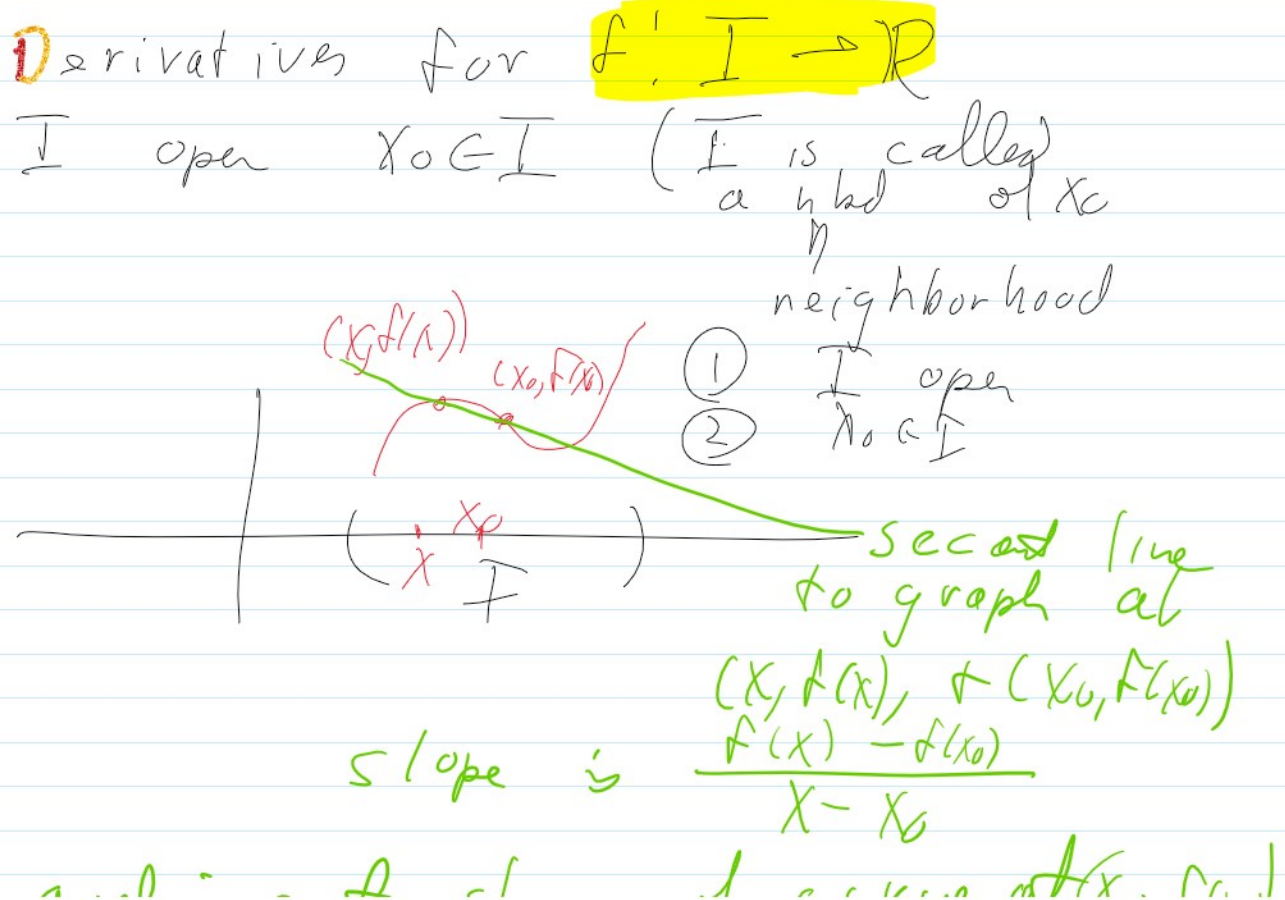 Derivatives for f: I → R
I open x₀ ∈ I (I is called
a nbd of x₀
neighborhood
① I open
② x₀ ∈ I
(x, f(x))
(x₀, f(x₀)
x₀
x
I
secant line
to graph at
(x, f(x), + (x₀, f(x₀))
slope is f(x) - f(x₀) / x - x₀